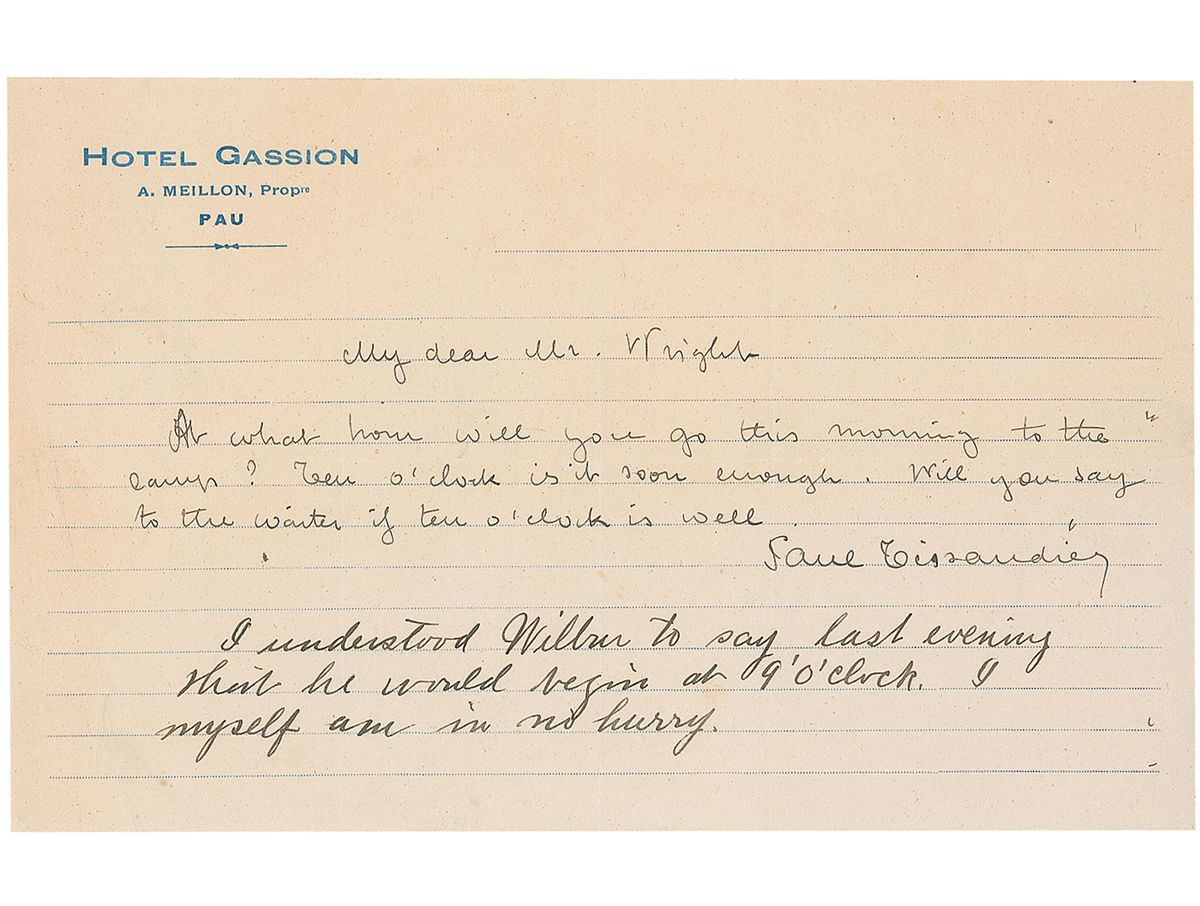 HOTEL GASSION
A. MEILLON, Propre
PAU
My dear Mr. Wright
At what hour will you go this morning to the
camp? Ten o'clock is it soon enough. Will you say
to the waiter if ten o'clock is well.
Paul Tissandier
I understood Wilbur to say last evening
that he would begin at 9 O'clock. I
myself am in no hurry.